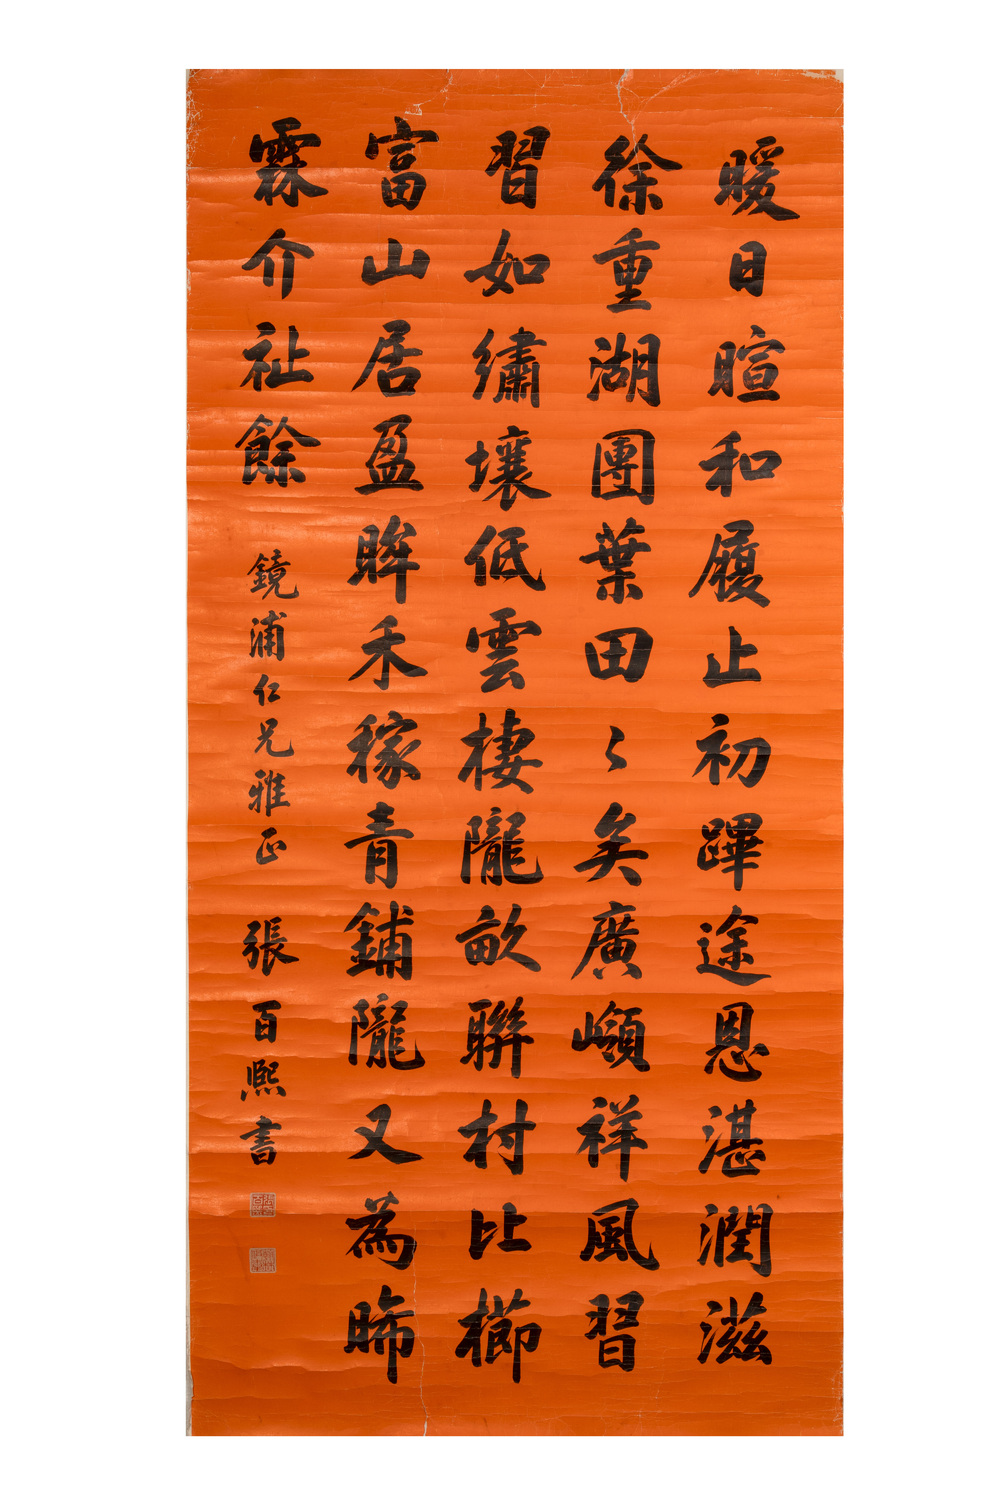 暖日暄和履止初蹕途恩湛潤滋
徐重湖團葉田〻矣廣巘祥風習
習如繡壤低雲棲隴畝聯村比櫛
富山居盈眸禾稼青鋪隴又為晞
霖介祉餘
鏡浦仁兄雅正
張百熙書